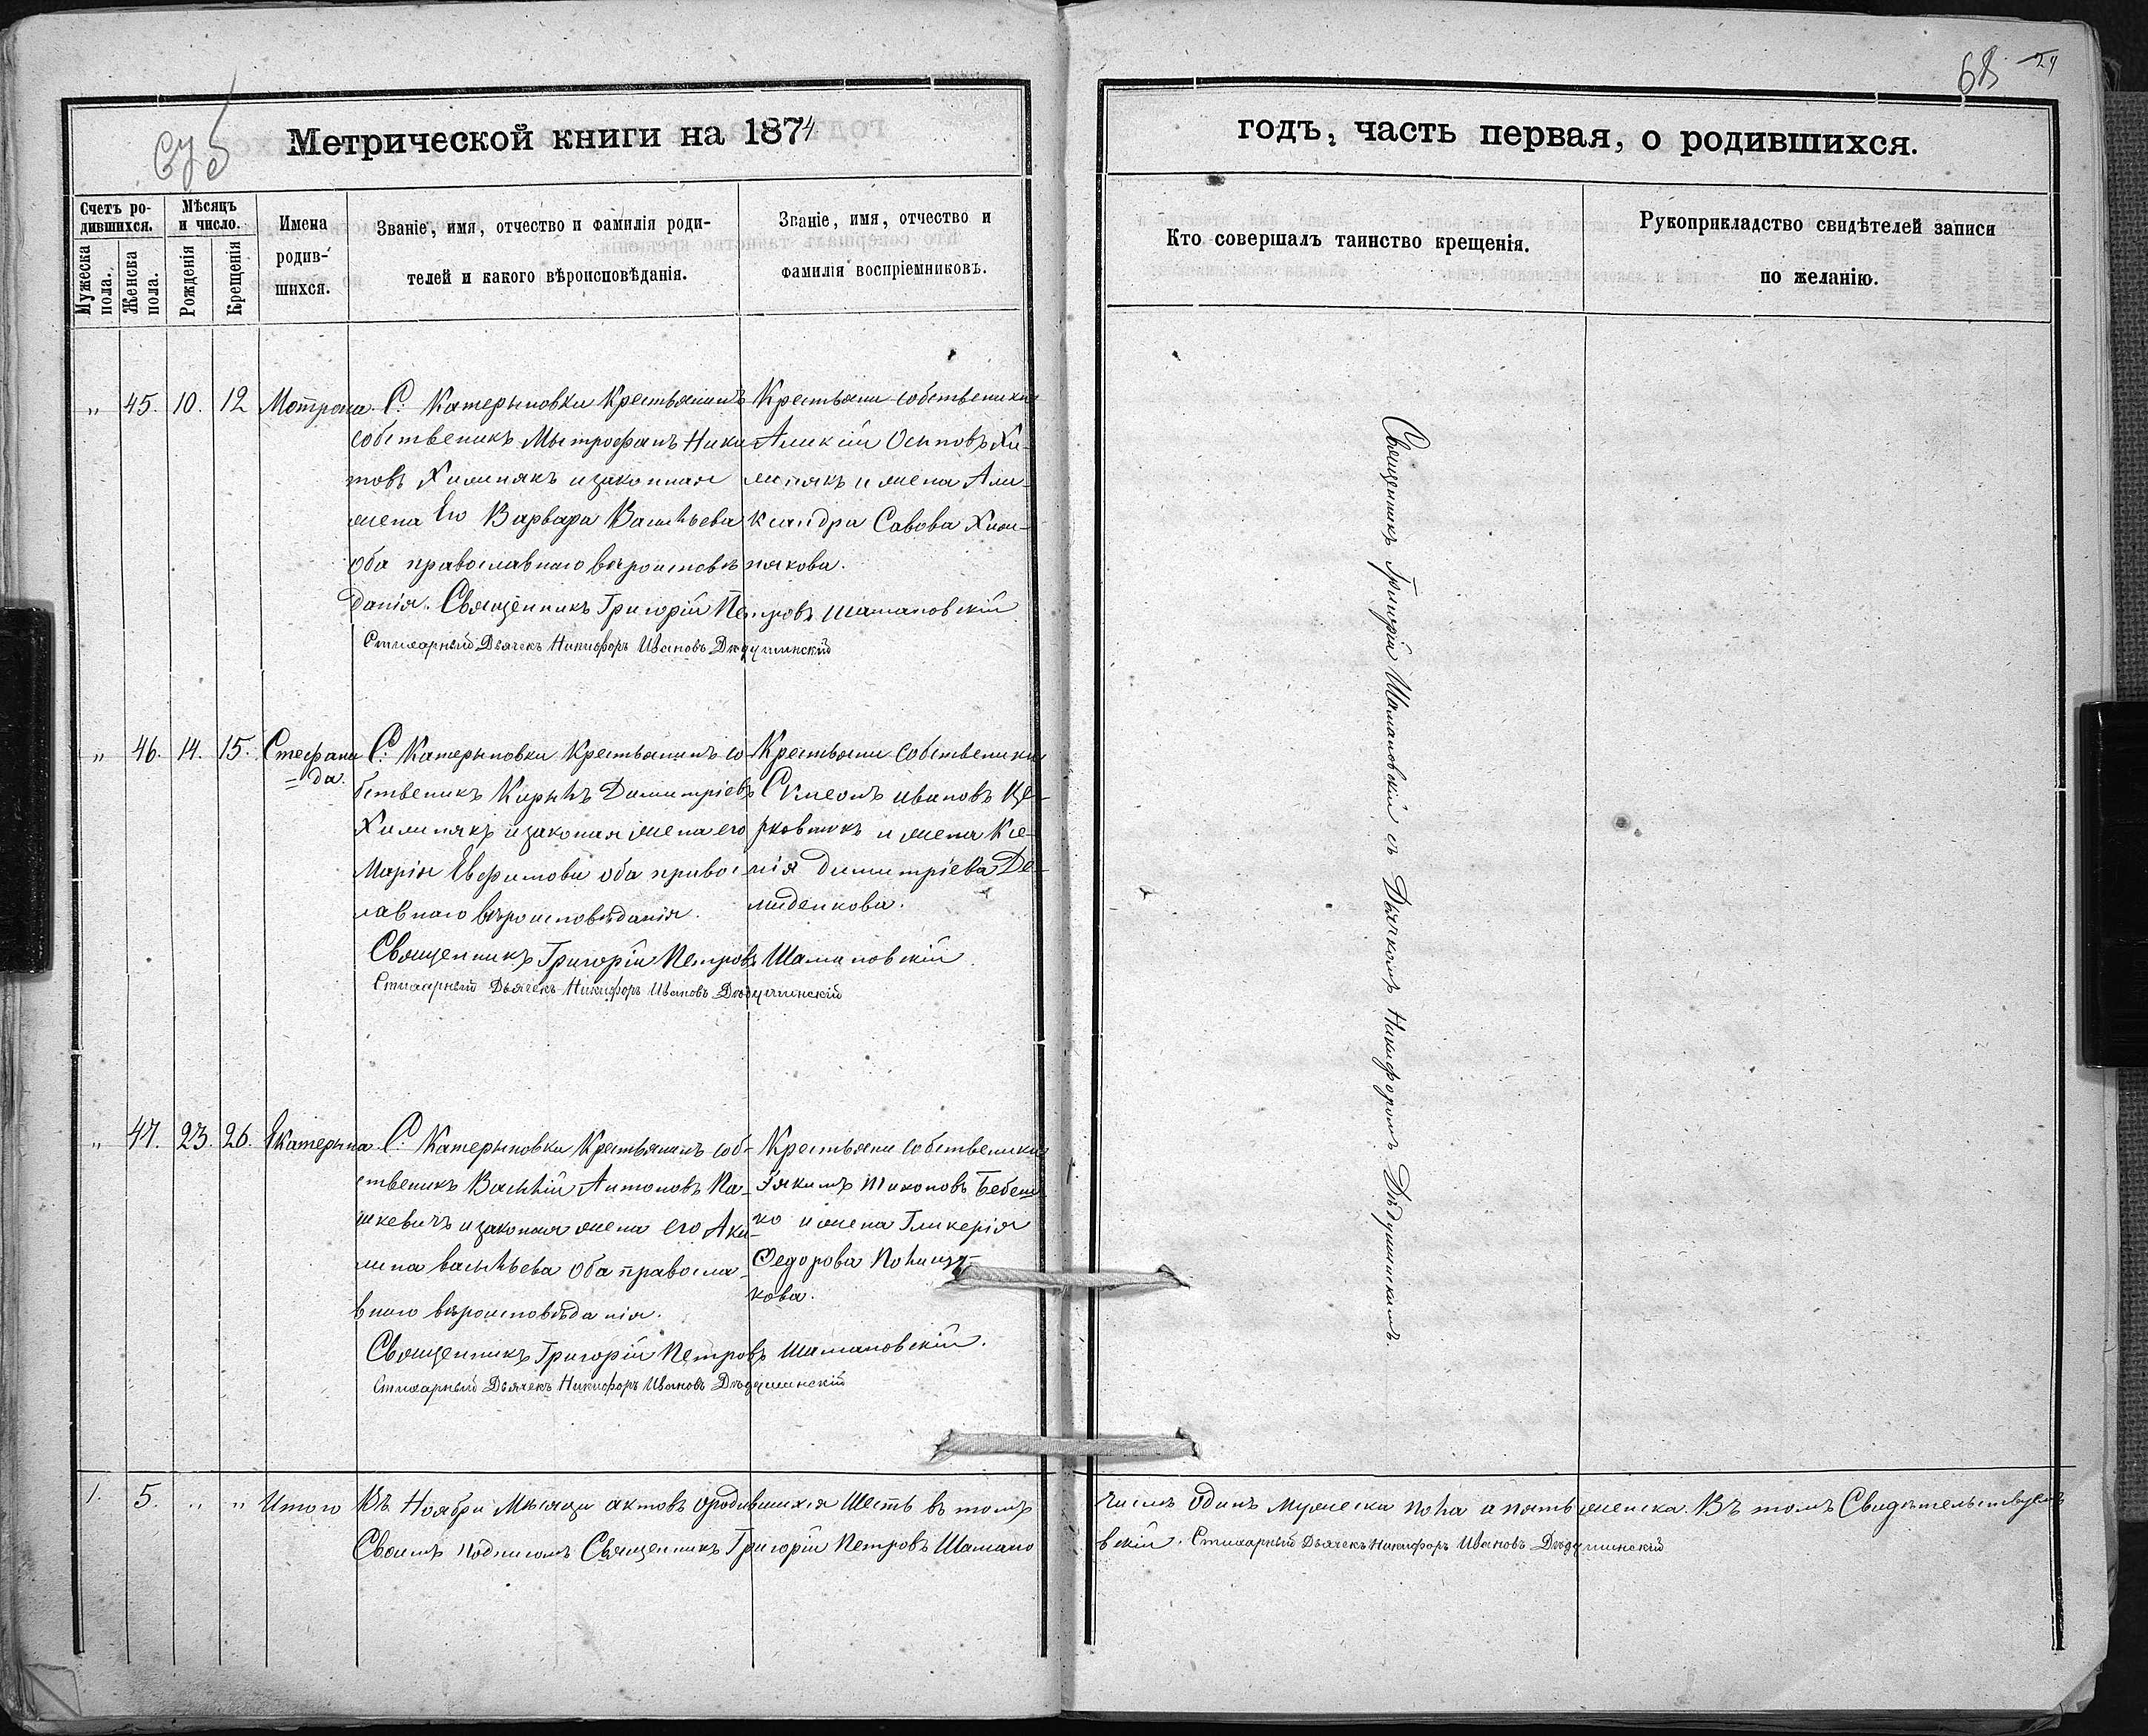 68 24
Метрической книги на 1874
годъ, часть первая, о родившихся.
Счетъ родившихся.
Мужеска пола.
Женска пола.
Мѣсяцъ и число.
Рожденія
Крещенія
Имена родившихся.
Званіе, имя, отчество и фамилія родителей и какого вѣроисповѣданія.
Званіе, имя, отчество и фамилія воспріемниковъ.
Кто совершалъ таинство крещенія.
Рукоприкладство свидѣтелей записи по желанію.
„ 45. 10. 12 Мотрона
С. Катерыновки Крестьянинъ
собственикъ Мытрофанъ Ники
товъ Химинякъ и законная
жена Его Варвара Васильева
оба православнаго вѣроисповѣ
данія. Священникъ Григорій Петровъ Шамановскій
Стихарный Дьячекъ Никифоръ Ивановъ Дѣдушинскій
Крестьяни собственики
Алексій Осиповъ Хи-
минякъ и жена Але-
ксандра Савова Хими-
някова.
„ 46. 14. 15. Стефани
=да.
С. Катерыновки Крестьянинъ со
бственикъ Кирылъ Димитріевъ
Химинякъ и законая жена его
Марія Евфимова оба правос
лавнаго вѣроисповѣданія.
Священникъ Григорій Петровъ Шамановскій
Стихарный Дьячекъ Никифоръ Ивановъ Дѣдушинскій
Крестьяни собственики
Ивановъ Це-
рковникъ и жена Ксе-
нія Димитріева Де-
миденкова.
„ 47. 23. 26. Екатерына
С. Катерыновки Крестьянинъ соб-
ственикъ Василій Антоновъ Па-
шкевичъ и законая жена его Аки-
лина Васильева оба правосла-
внаго вѣроисповѣданія.
Священникъ Григорій Петровъ Шамановскій.
Стихарный Дьячекъ Никифоръ Ивановъ Дѣдушинскій
Крестьяни собственики
Іякимъ Тихоновъ
ко и жена Гликерія
Федорова
кова.
Священникъ Григорій Шамановскій съ Дьячкомъ Никифоромъ Дѣдушинскимъ
1. 5. „ „ Итого Въ Ноябри Мѣсяци актовъ ородившихся Шесть въ томъ числѣ одинъ мужеска пола а пять женска. Въ томъ Свидѣтельствуемъ
Своимъ подписомъ Священникъ Григорій Петровъ Шамановскій. Стихарный Дьячекъ Никифоръ Ивановъ Дѣдушинскій